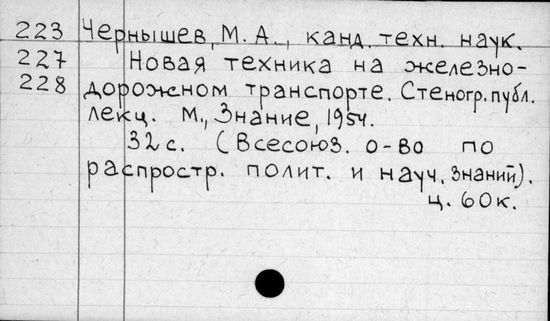 223 Чернышев, М. А., канд. техн. наук.
227 Новая техника на железно-
228 дорожном транспорте. Стеногр. публ.
лекц. М., Знание, 1954.
32 с. (Всесоюз. о-во по
распростр. полит. и науч. знаний).
ц. 60 к.